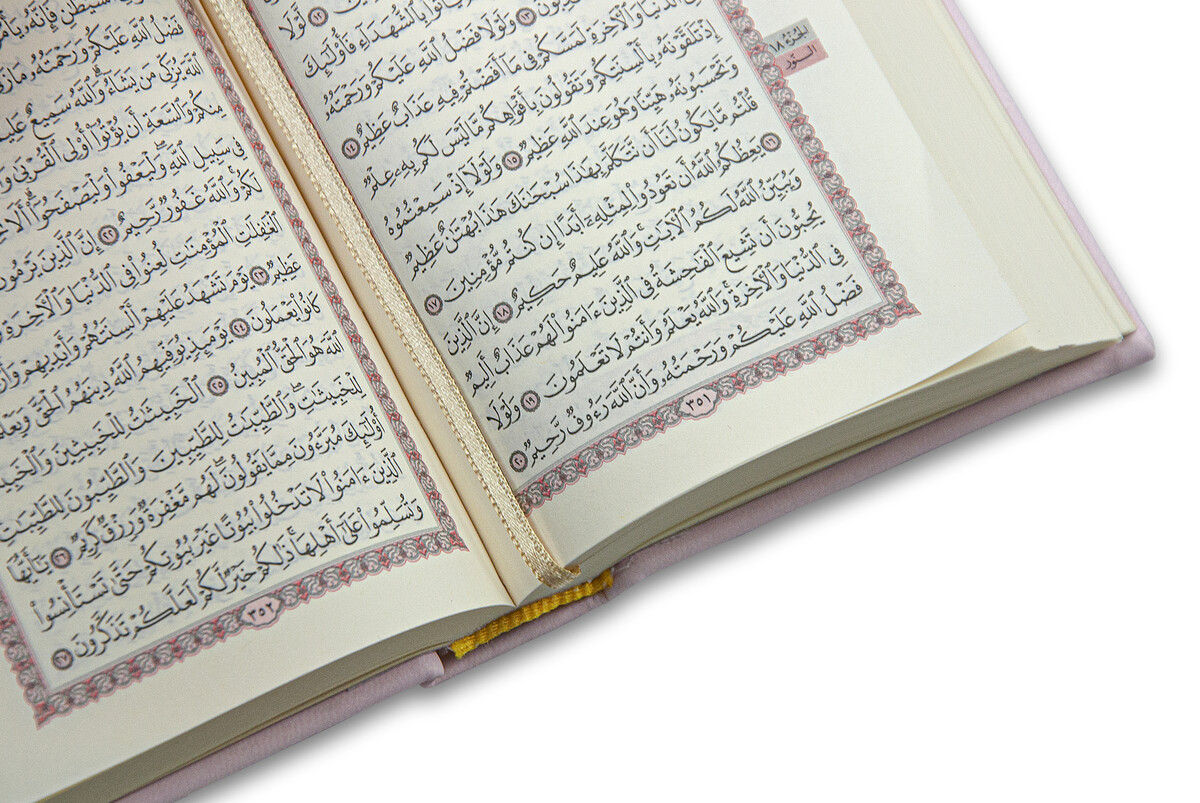 ١٢ لَّوْلَا
يَأْتُوا۟ بِٱلشُّهَدَآءِ فَأُو۟لَٰٓئِكَ
١٣ وَلَوْلَا فَضْلُ ٱللَّهِ عَلَيْكُمْ وَرَحْمَتُهُۥ
ٱلدُّنْيَا وَٱلْءَاخِرَةِ لَمَسَّكُمْ فِى مَآ أَفَضْتُمْ فِيهِ عَذَابٌ عَظِيمٌ ١٤
إِذْ تَلَقَّوْنَهُۥ بِأَلْسِنَتِكُمْ وَتَقُولُونَ بِأَفْوَاهِكُم مَّا لَيْسَ لَكُم بِهِۦ عِلْمٌ
وَتَحْسَبُونَهُۥ هَيِّنًا وَهُوَ عِندَ ٱللَّهِ عَظِيمٌ ١٥ وَلَوْلَآ إِذْ سَمِعْتُمُوهُ
قُلْتُم مَّا يَكُونُ لَنَآ أَن نَّتَكَلَّمَ بِهَٰذَا سُبْحَٰنَكَ هَٰذَا بُهْتَٰنٌ عَظِيمٌ
١٦ يَعِظُكُمُ ٱللَّهُ أَن تَعُودُوا۟ لِمِثْلِهِۦٓ أَبَدًا إِن كُنتُم مُّؤْمِنِينَ ١٧
وَيُبَيِّنُ ٱللَّهُ لَكُمُ ٱلْءَايَٰتِ وَٱللَّهُ عَلِيمٌ حَكِيمٌ ١٨ إِنَّ ٱلَّذِينَ
يُحِبُّونَ أَن تَشِيعَ ٱلْفَٰحِشَةُ فِى ٱلَّذِينَ ءَامَنُوا۟ لَهُمْ عَذَابٌ أَلِيمٌ
فِى ٱلدُّنْيَا وَٱلْءَاخِرَةِ وَٱللَّهُ يَعْلَمُ وَأَنتُمْ لَا تَعْلَمُونَ ١٩ وَلَوْلَا
فَضْلُ ٱللَّهِ عَلَيْكُمْ وَرَحْمَتُهُۥ وَأَنَّ ٱللَّهَ رَءُوفٌ رَّحِيمٌ ٢٠
٣٥١
الجزء ١٨
النور
فَإِنَّهُۥ
فَضْلُ ٱللَّهِ عَلَيْكُمْ وَرَحْمَتُهُۥ مَا
ٱللَّهَ يُزَكِّى مَن يَشَآءُ وَٱللَّهُ سَمِيعٌ
مِنكُمْ وَٱلسَّعَةِ أَن يُؤْتُوٓا۟ أُو۟لِى ٱلْقُرْبَىٰ
فِى سَبِيلِ ٱللَّهِ وَلْيَعْفُوا۟ وَلْيَصْفَحُوٓا۟
لَكُمْ وَٱللَّهُ غَفُورٌ رَّحِيمٌ ٢٢ إِنَّ ٱلَّذِينَ يَرْمُونَ
ٱلْغَٰفِلَٰتِ ٱلْمُؤْمِنَٰتِ لُعِنُوا۟ فِى ٱلدُّنْيَا وَٱلْءَاخِرَةِ
عَظِيمٌ ٢٣ يَوْمَ تَشْهَدُ عَلَيْهِمْ أَلْسِنَتُهُمْ وَأَيْدِيهِمْ
كَانُوا۟ يَعْمَلُونَ ٢٤ يَوْمَئِذٍ يُوَفِّيهِمُ ٱللَّهُ دِينَهُمُ ٱلْحَقَّ
ٱللَّهَ هُوَ ٱلْحَقُّ ٱلْمُبِينُ ٢٥ ٱلْخَبِيثَٰتُ لِلْخَبِيثِينَ
لِلْخَبِيثَٰتِ وَٱلطَّيِّبَٰتُ لِلطَّيِّبِينَ وَٱلطَّيِّبُونَ لِلطَّيِّبَٰتِ
أُو۟لَٰٓئِكَ مُبَرَّءُونَ مِمَّا يَقُولُونَ لَهُم مَّغْفِرَةٌ وَرِزْقٌ كَرِيمٌ ٢٦ يَٰٓأَيُّهَا
ٱلَّذِينَ ءَامَنُوا۟ لَا تَدْخُلُوا۟ بُيُوتًا غَيْرَ بُيُوتِكُمْ حَتَّىٰ تَسْتَأْنِسُوا۟
وَتُسَلِّمُوا۟ عَلَىٰٓ أَهْلِهَا ذَٰلِكُمْ خَيْرٌ لَّكُمْ لَعَلَّكُمْ تَذَكَّرُونَ ٢٧
٣٥٢